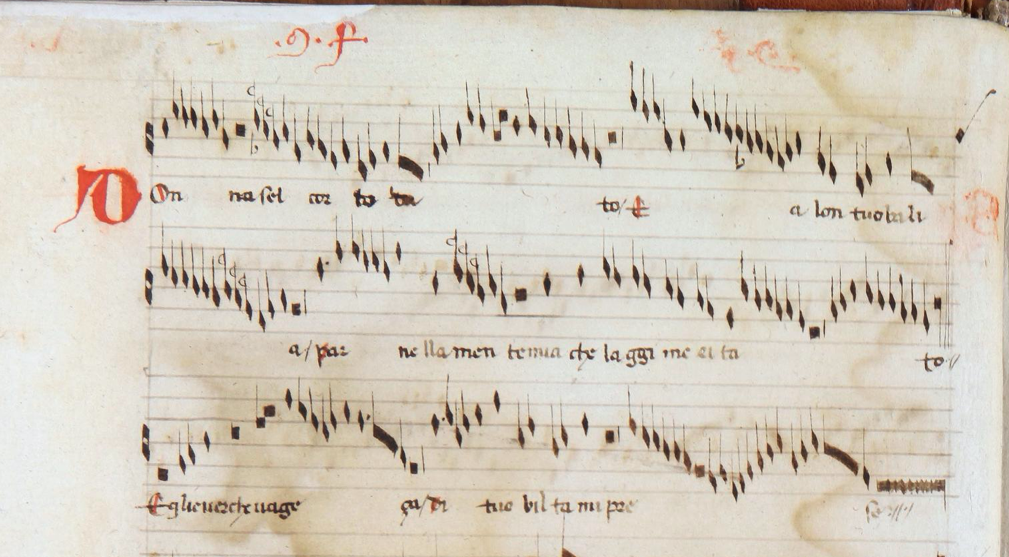 .G. f.
DOn na sel cor to ta to/ E a lon tuo ba li
a/ par ne lla men te mia che la ggi me ei ta to
E gliever che vage ça/ Di tuo bil ta mi pre so